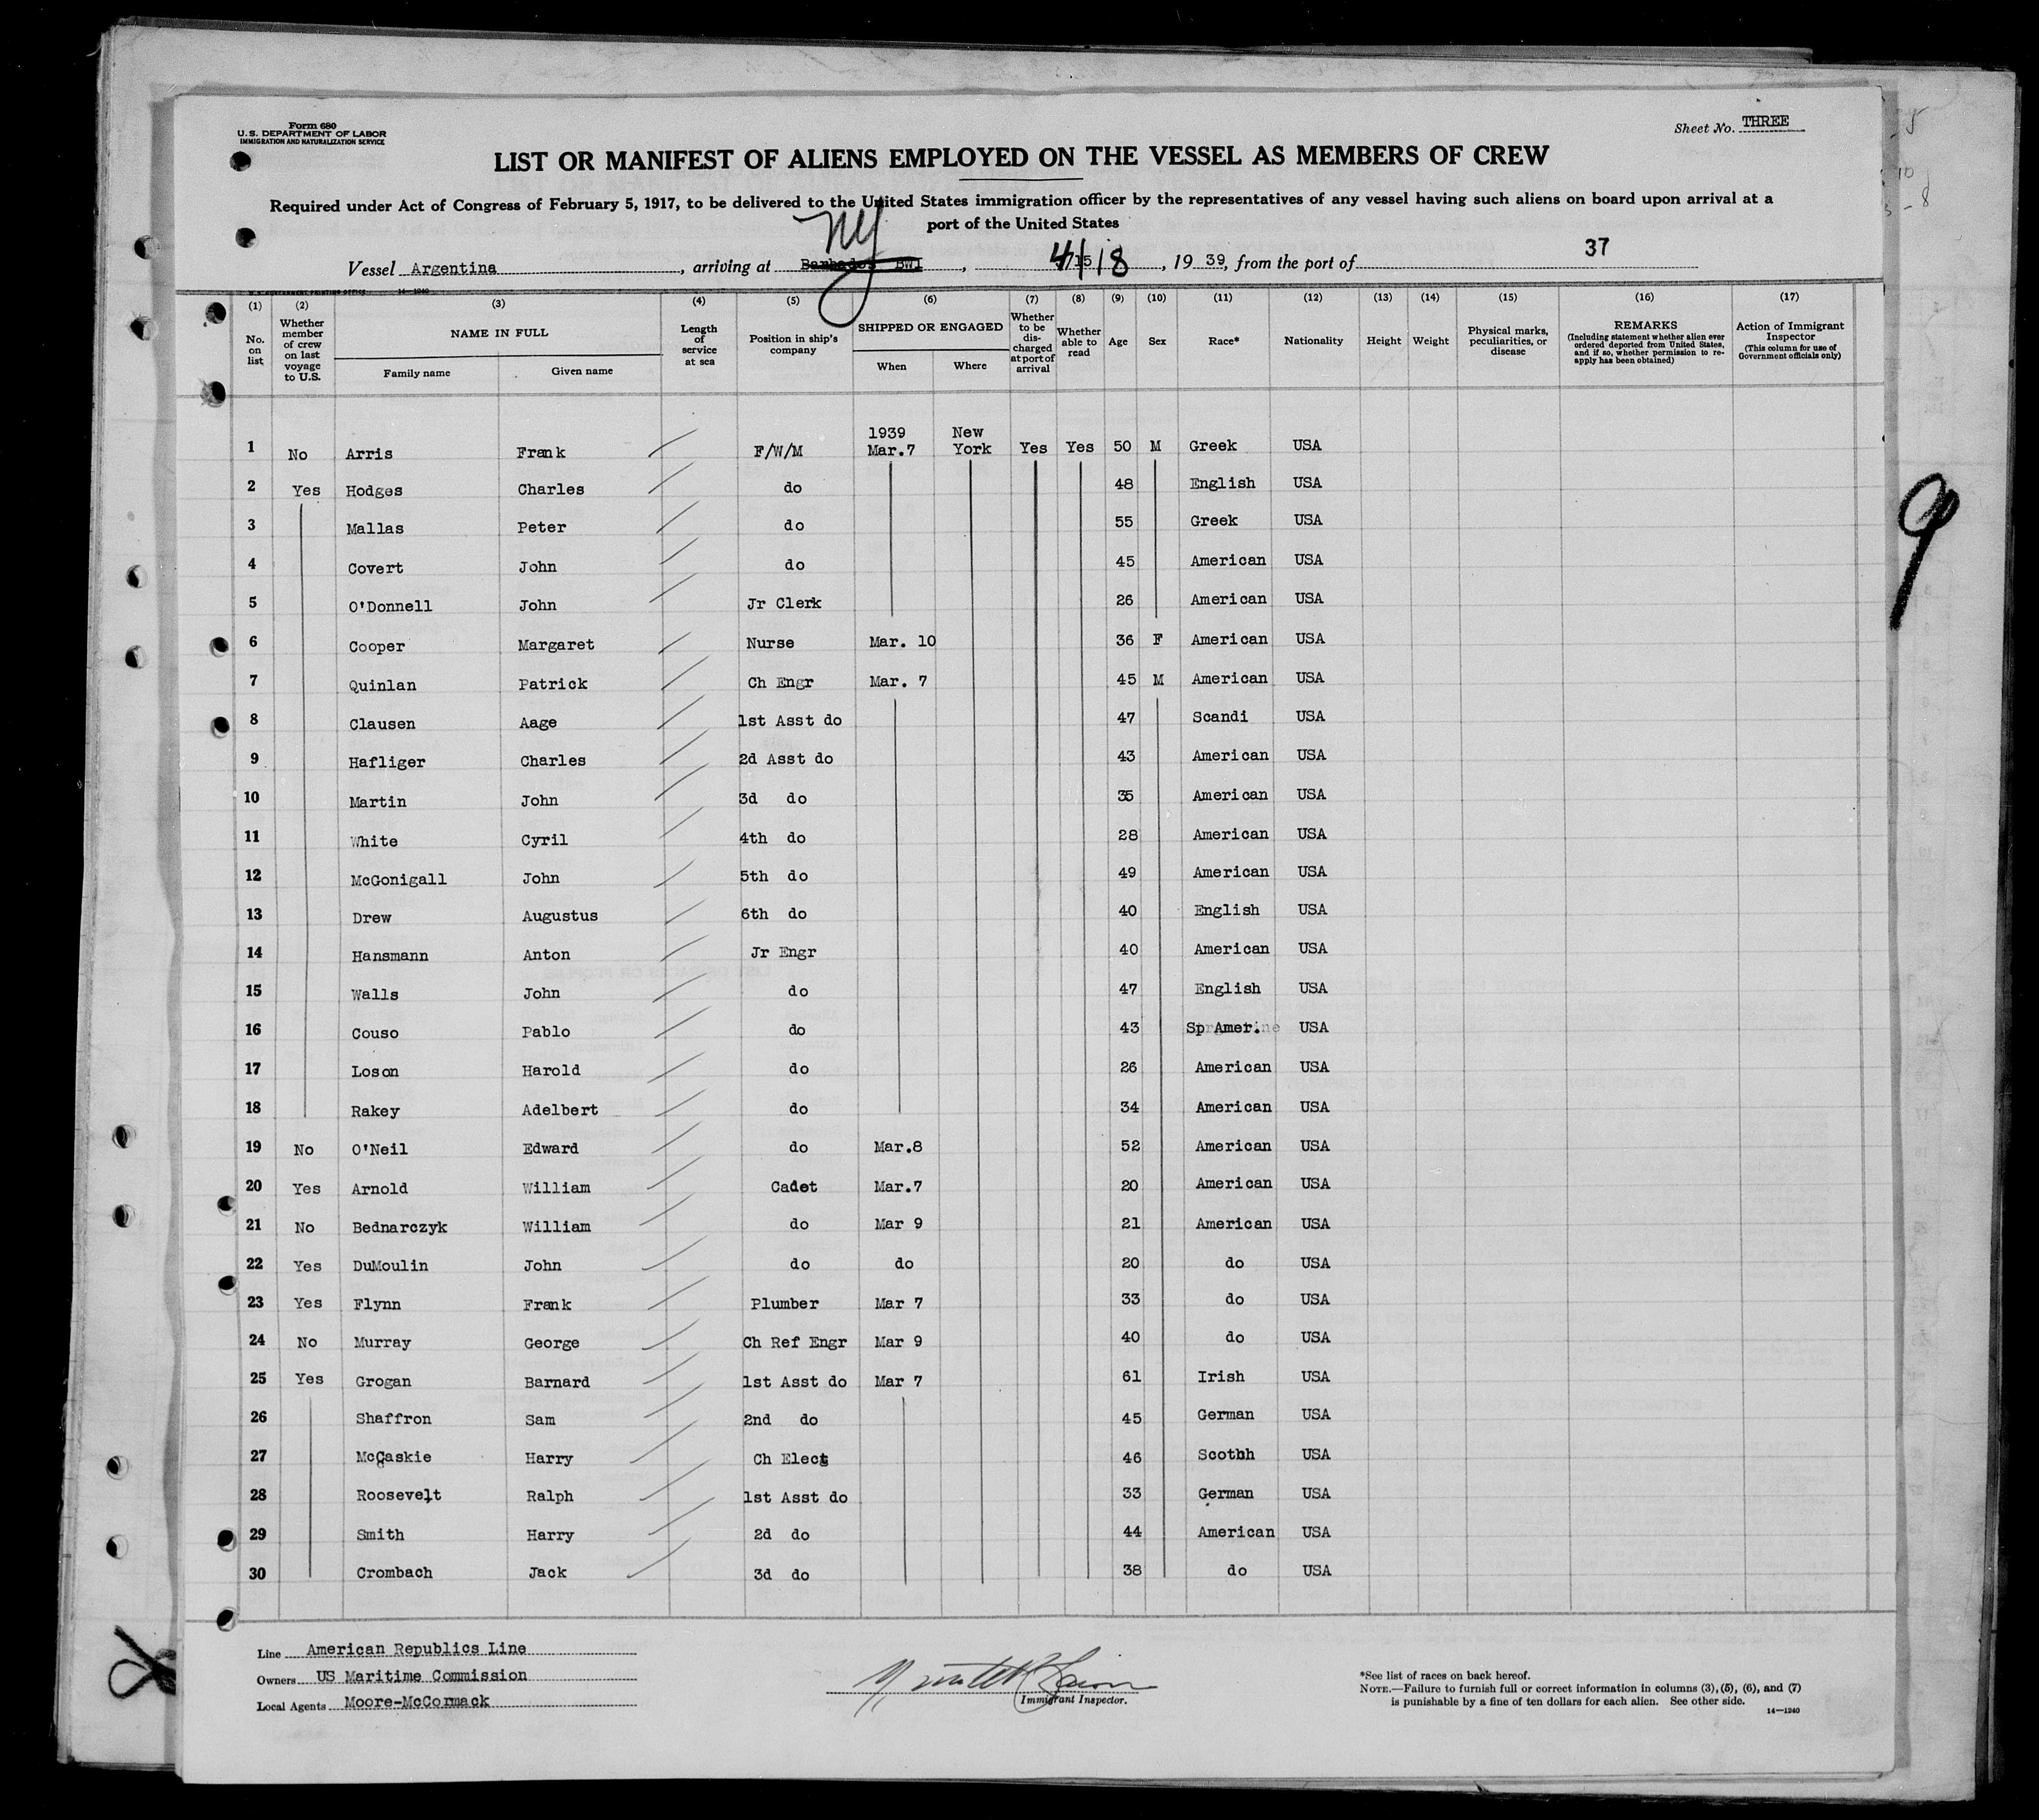 Form 680
U.S. DEPARTMENT OF LABOR
IMMIGRATION AND NATURALIZATION SERVICE
Sheet No. THREE
LIST OR MANIFEST OF ALIENS EMPLOYED ON THE VESSEL AS MEMBERS OF CREW
Required under Act of Congress of February 5, 1917, to be delivered to the United States immigration officer by the representatives of any vessel having such aliens on board upon arrival at a
port of the United States
NY
37
Vessel Argentina, arriving at Barbados BWI, 4/18, 1939, from the port of
(1) (2) (3) (4) (5) (6) (7) (8) (9) (10) (11) (12) (13) (14) (15) (16) (17)
No. on list
Whether member of crew on last voyage to U.S.
NAME IN FULL
Family name
Given name
Length of service at sea
Position in ship's company
SHIPPED OR ENGAGED
When
Where
Whether to be discharged at port of arrival
Whether able to read
Age
Sex
Race*
Nationality
Height
Weight
Physical marks, peculiarities, or disease
REMARKS
(Including statement whether alien ever ordered deported from United States, and if so, whether permission to reapply has been obtained)
Action of Immigrant Inspector
(This column for use of Government officials only)
1 No Arris Frank F/W/M 1939 Mar.7 New York Yes Yes 50 M Greek USA
2 Yes Hodges Charles do 48 English USA
3 Mallas Peter do 55 Greek USA
4 Covert John do 45 American USA
5 O'Donnell John Jr Clerk 26 American USA
6 Cooper Margaret Nurse Mar. 10 36 F American USA
7 Quinlan Patrick Ch Engr Mar. 7 45 M American USA
8 Clausen Aage 1st Asst do 47 Scandi USA
9 Hafliger Charles 2d Asst do 43 American USA
10 Martin John 3d do 35 American USA
11 White Cyril 4th do 28 American USA
12 McGonigall John 5th do 49 American USA
13 Drew Augustus 6th do 40 English USA
14 Hansmann Anton Jr Engr 40 American USA
15 Walls John do 47 English USA
16 Couso Pablo do 43 Sp Amer. USA
17 Loson Harold do 26 American USA
18 Rakey Adelbert do 34 American USA
19 No O'Neil Edward do Mar.8 52 American USA
20 Yes Arnold William Cadet Mar.7 20 American USA
21 No Bednarczyk William do Mar 9 21 American USA
22 Yes DuMoulin John do do 20 do USA
23 Yes Flynn Frank Plumber Mar 7 33 do USA
24 No Murray George Ch Ref Engr Mar 9 40 do USA
25 Yes Grogan Barnard 1st Asst do Mar 7 61 Irish USA
26 Shaffron Sam 2nd do 45 German USA
27 McCaskie Harry Ch Elect 46 Scothh USA
28 Roosevelt Ralph 1st Asst do 33 German USA
29 Smith Harry 2d do 44 American USA
30 Crombach Jack 3d do 38 do USA
9
Line American Republics Line
Owners US Maritime Commission
Local Agents Moore-McCormack
Immigrant Inspector.
*See list of races on back hereof.
NOTE.—Failure to furnish full or correct information in columns (3), (5), (6), and (7)
is punishable by a fine of ten dollars for each alien. See other side.
14—1240